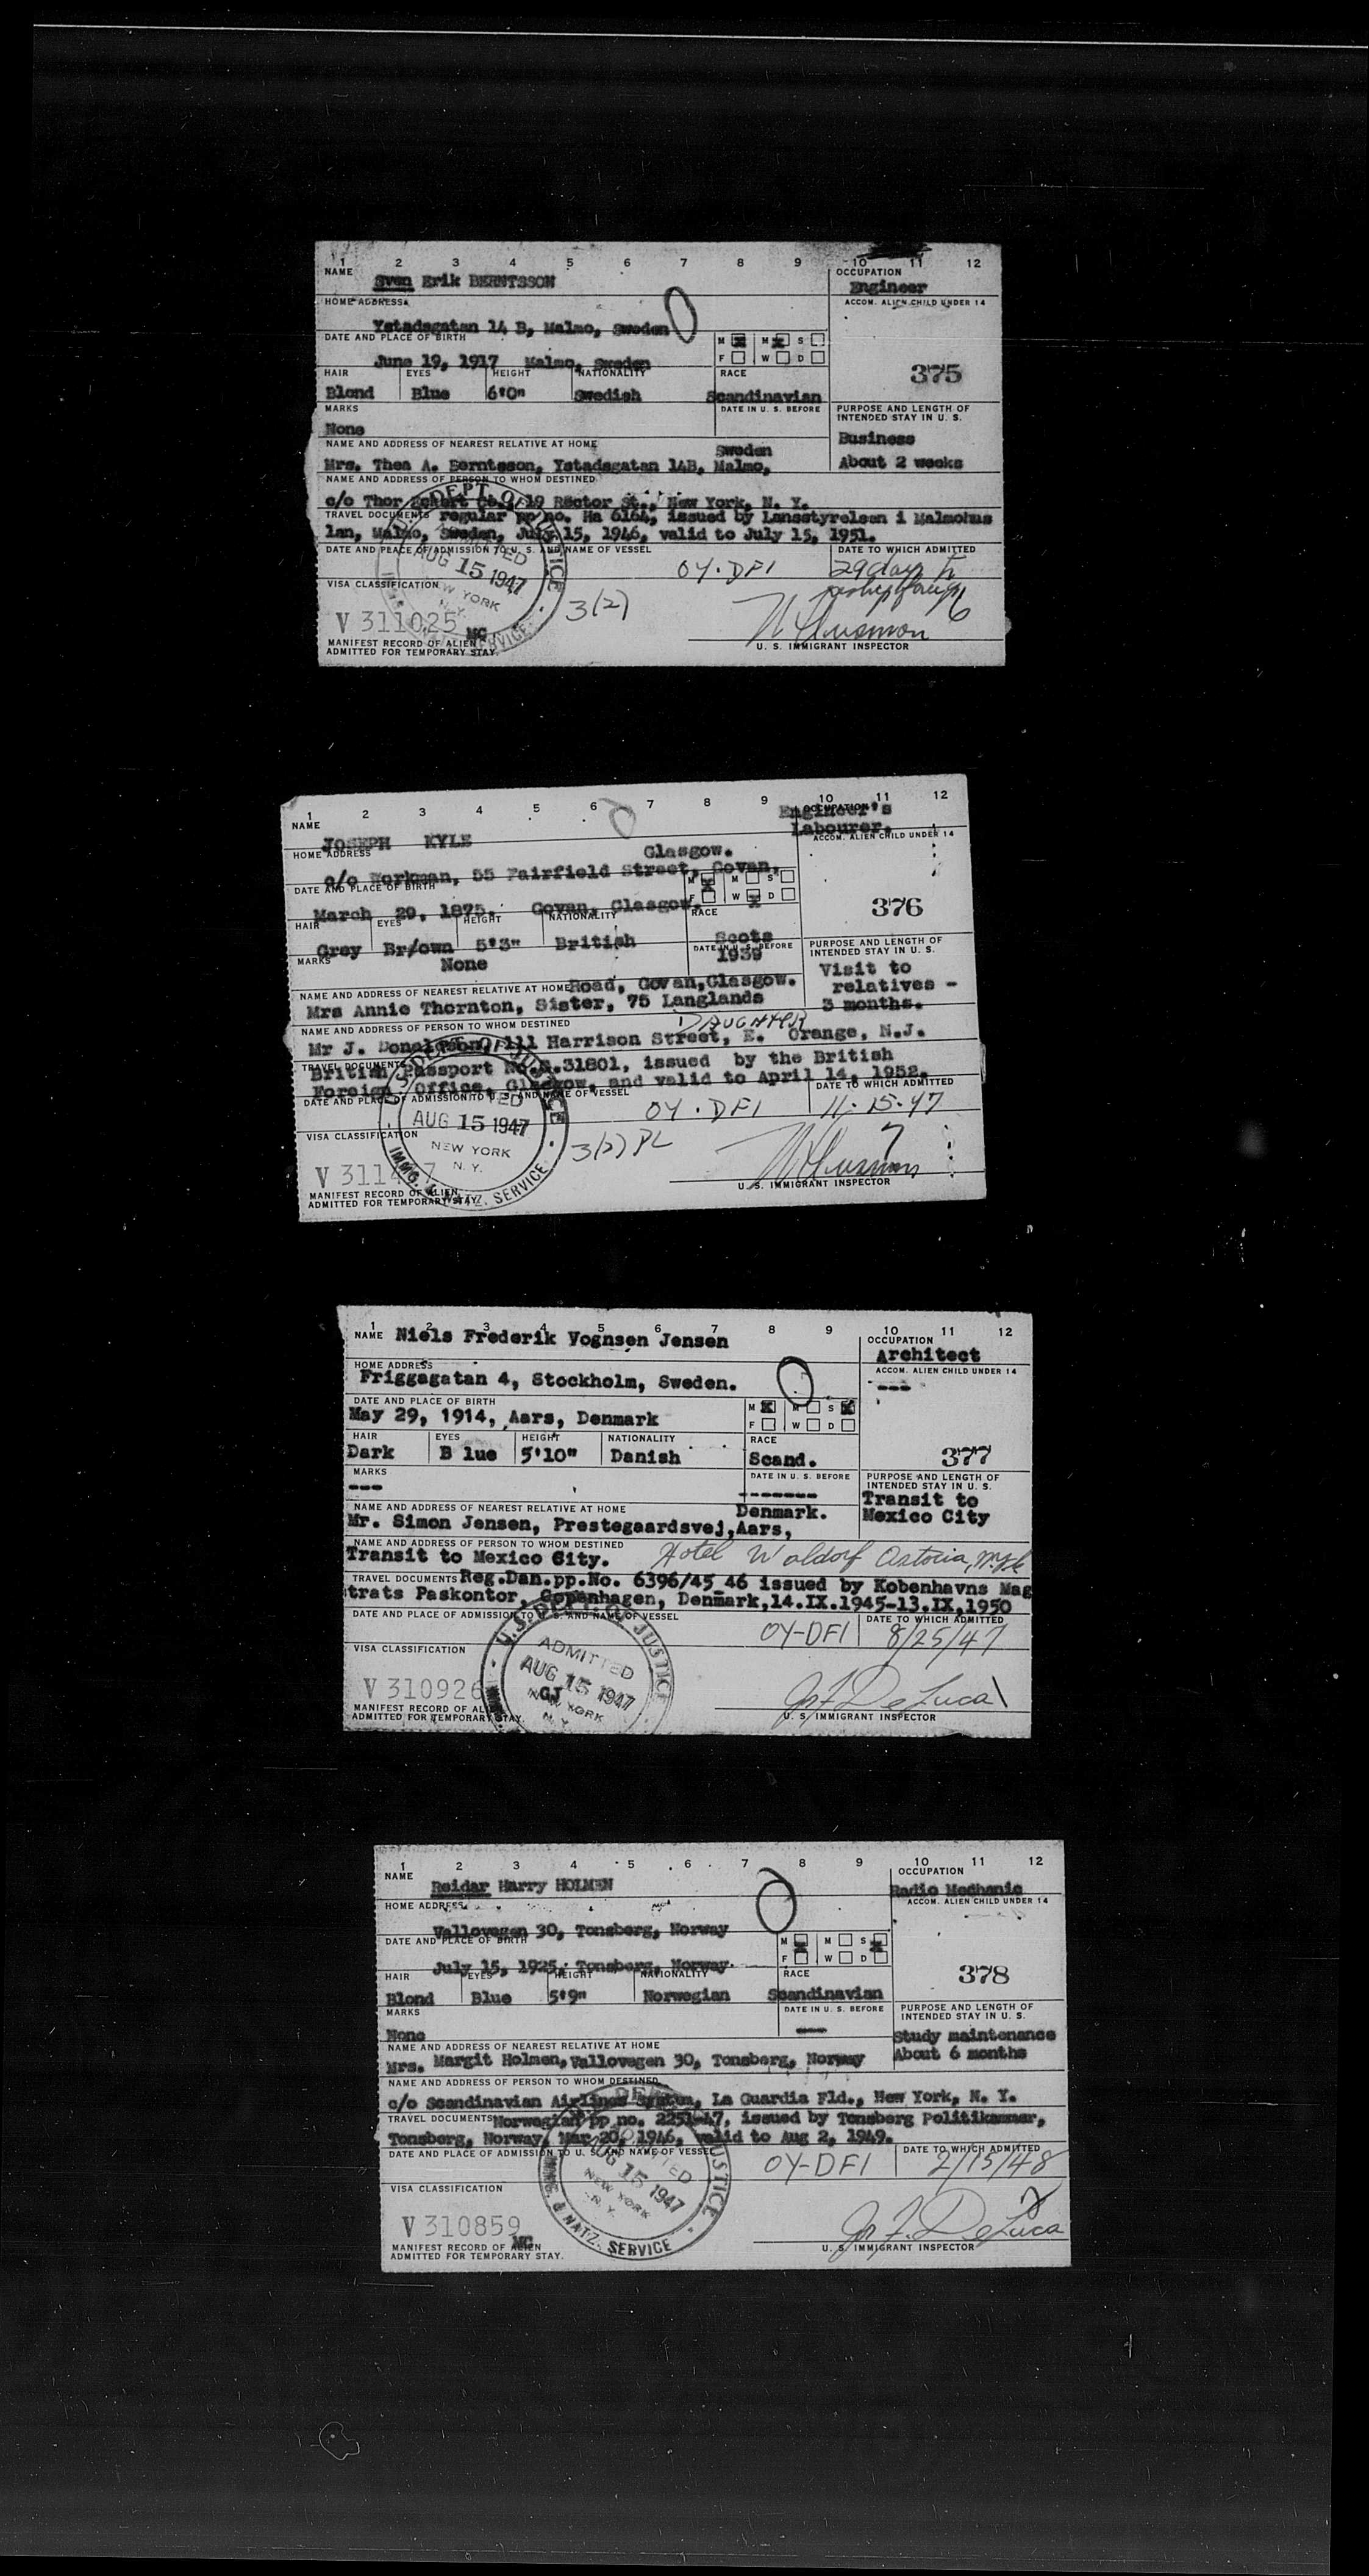 1 2 3 4 5 6 7 8 9 10 11 12
NAME OCCUPATION
Sven Erik BERNTSSON Engineer
HOME ADDRESS ACCOM. ALIEN CHILD UNDER 14
Ystadsgatan 14 B, Malmo, Sweden
DATE AND PLACE OF BIRTH M M S
June 19, 1917 Malmo, Sweden F W D
375
HAIR EYES HEIGHT NATIONALITY RACE
Blond Blue 6'0" Swedish Scandinavian
MARKS DATE IN U. S. BEFORE PURPOSE AND LENGTH OF INTENDED STAY IN U. S.
None Business
NAME AND ADDRESS OF NEAREST RELATIVE AT HOME Sweden
Mrs. Thea A. Berntsson, Ystadsgatan 14B, Malmo, About 2 weeks
NAME AND ADDRESS OF PERSON TO WHOM DESTINED
c/o Thor Eckert Co., 19 Rector St., New York, N. Y.
TRAVEL DOCUMENTS regular pp no. Ha 6164, issued by Lansstyrelsen i Malmohus
lan, Malmo, Sweden, July 15, 1946, valid to July 15, 1951.
DATE AND PLACE OF ADMISSION TO U. S. AND NAME OF VESSEL DATE TO WHICH ADMITTED
AUG 15 1947 OY-DFI 29 days
NEW YORK N.Y.
VISA CLASSIFICATION 3(2) 6
V 311025 MG
MANIFEST RECORD OF ALIEN
ADMITTED FOR TEMPORARY STAY. U. S. IMMIGRANT INSPECTOR
1 2 3 4 5 6 7 8 9 10 11 12
NAME OCCUPATION Engineer's
JOSEPH KYLE Labourer.
HOME ADDRESS Glasgow. ACCOM. ALIEN CHILD UNDER 14
c/o Workman, 55 Fairfield Street, Govan,
DATE AND PLACE OF BIRTH M M S
March 29, 1875. Govan, Glasgow. F W D
376
HAIR EYES HEIGHT NATIONALITY RACE
Grey Br/own 5'3" British Scots
MARKS DATE IN U. S. BEFORE PURPOSE AND LENGTH OF INTENDED STAY IN U. S.
None 1939 Visit to
relatives -
3 months.
NAME AND ADDRESS OF NEAREST RELATIVE AT HOME Road, Govan, Glasgow.
Mrs Annie Thornton, Sister, 75 Langlands
NAME AND ADDRESS OF PERSON TO WHOM DESTINED DAUGHTER
Mr J. Donaldson, 111 Harrison Street, E. Orange, N.J.
TRAVEL DOCUMENTS
British Passport No. 31801, issued by the British
Foreign Office, Glasgow, and valid to April 14, 1952.
DATE AND PLACE OF ADMISSION TO U. S. AND NAME OF VESSEL DATE TO WHICH ADMITTED
AUG 15 1947 OY-DFI 11-15-47
NEW YORK N. Y.
IMMG. & NATZ. SERVICE
VISA CLASSIFICATION 3(2) PL 7
V 311
MANIFEST RECORD OF ALIEN
ADMITTED FOR TEMPORARY STAY. U. S. IMMIGRANT INSPECTOR
1 2 3 4 5 6 7 8 9 10 11 12
NAME Niels Frederik Vognsen Jensen OCCUPATION
Architect
HOME ADDRESS ACCOM. ALIEN CHILD UNDER 14
Friggagatan 4, Stockholm, Sweden. ---
DATE AND PLACE OF BIRTH M M S
May 29, 1914, Aars, Denmark F W D
HAIR EYES HEIGHT NATIONALITY RACE 377
Dark B lue 5'10" Danish Scand.
MARKS DATE IN U. S. BEFORE PURPOSE AND LENGTH OF INTENDED STAY IN U. S.
--- ------- Transit to
NAME AND ADDRESS OF NEAREST RELATIVE AT HOME Denmark. Mexico City
Mr. Simon Jensen, Prestegaardsvej, Aars,
NAME AND ADDRESS OF PERSON TO WHOM DESTINED
Transit to Mexico City. Hotel Waldorf Astoria,
TRAVEL DOCUMENTS Reg.Dan.pp.No. 6396/45_46 issued by Kobenhavns Mag
trats Paskontor, Copenhagen, Denmark,14.IX.1945-13.IX,1950
DATE AND PLACE OF ADMISSION TO U. S. AND NAME OF VESSEL DATE TO WHICH ADMITTED
U.S. DEPT. OF JUSTICE OY-DFI 8/25/47
ADMITTED
AUG 15 1947
NEW YORK N. Y.
VISA CLASSIFICATION
V 310926 GJ
MANIFEST RECORD OF ALIEN
ADMITTED FOR TEMPORARY STAY. De Luca
U. S. IMMIGRANT INSPECTOR
1 2 3 4 5 6 7 8 9 10 11 12
NAME OCCUPATION
Reidar Harry HOLMEN Radio Mechanic
HOME ADDRESS ACCOM. ALIEN CHILD UNDER 14
Vallovegen 30, Tonsberg, Norway
DATE AND PLACE OF BIRTH M M S
July 15, 1925, Tonsberg, Norway. F W D
378
HAIR EYES HEIGHT NATIONALITY RACE
Blond Blue 5'9" Norwegian Scandinavian
MARKS DATE IN U. S. BEFORE PURPOSE AND LENGTH OF INTENDED STAY IN U. S.
None --- Study maintenance
NAME AND ADDRESS OF NEAREST RELATIVE AT HOME About 6 months
Mrs. Margit Holmen, Vallovegen 30, Tonsberg, Norway
NAME AND ADDRESS OF PERSON TO WHOM DESTINED
c/o Scandinavian Airlines System, La Guardia Fld., New York, N. Y.
TRAVEL DOCUMENTS Norwegian pp no. 2251-47, issued by Tonsberg Politikammer,
Tonsberg, Norway, Mar 20, 1946, valid to Aug 2, 1949.
DATE AND PLACE OF ADMISSION TO U. S. AND NAME OF VESSEL DATE TO WHICH ADMITTED
AUG 15 1947 OY-DFI 2/15/48
NEW YORK N. Y.
& NATZ. SERVICE
VISA CLASSIFICATION
V 310859 MG
MANIFEST RECORD OF ALIEN
ADMITTED FOR TEMPORARY STAY. De Luca
U. S. IMMIGRANT INSPECTOR